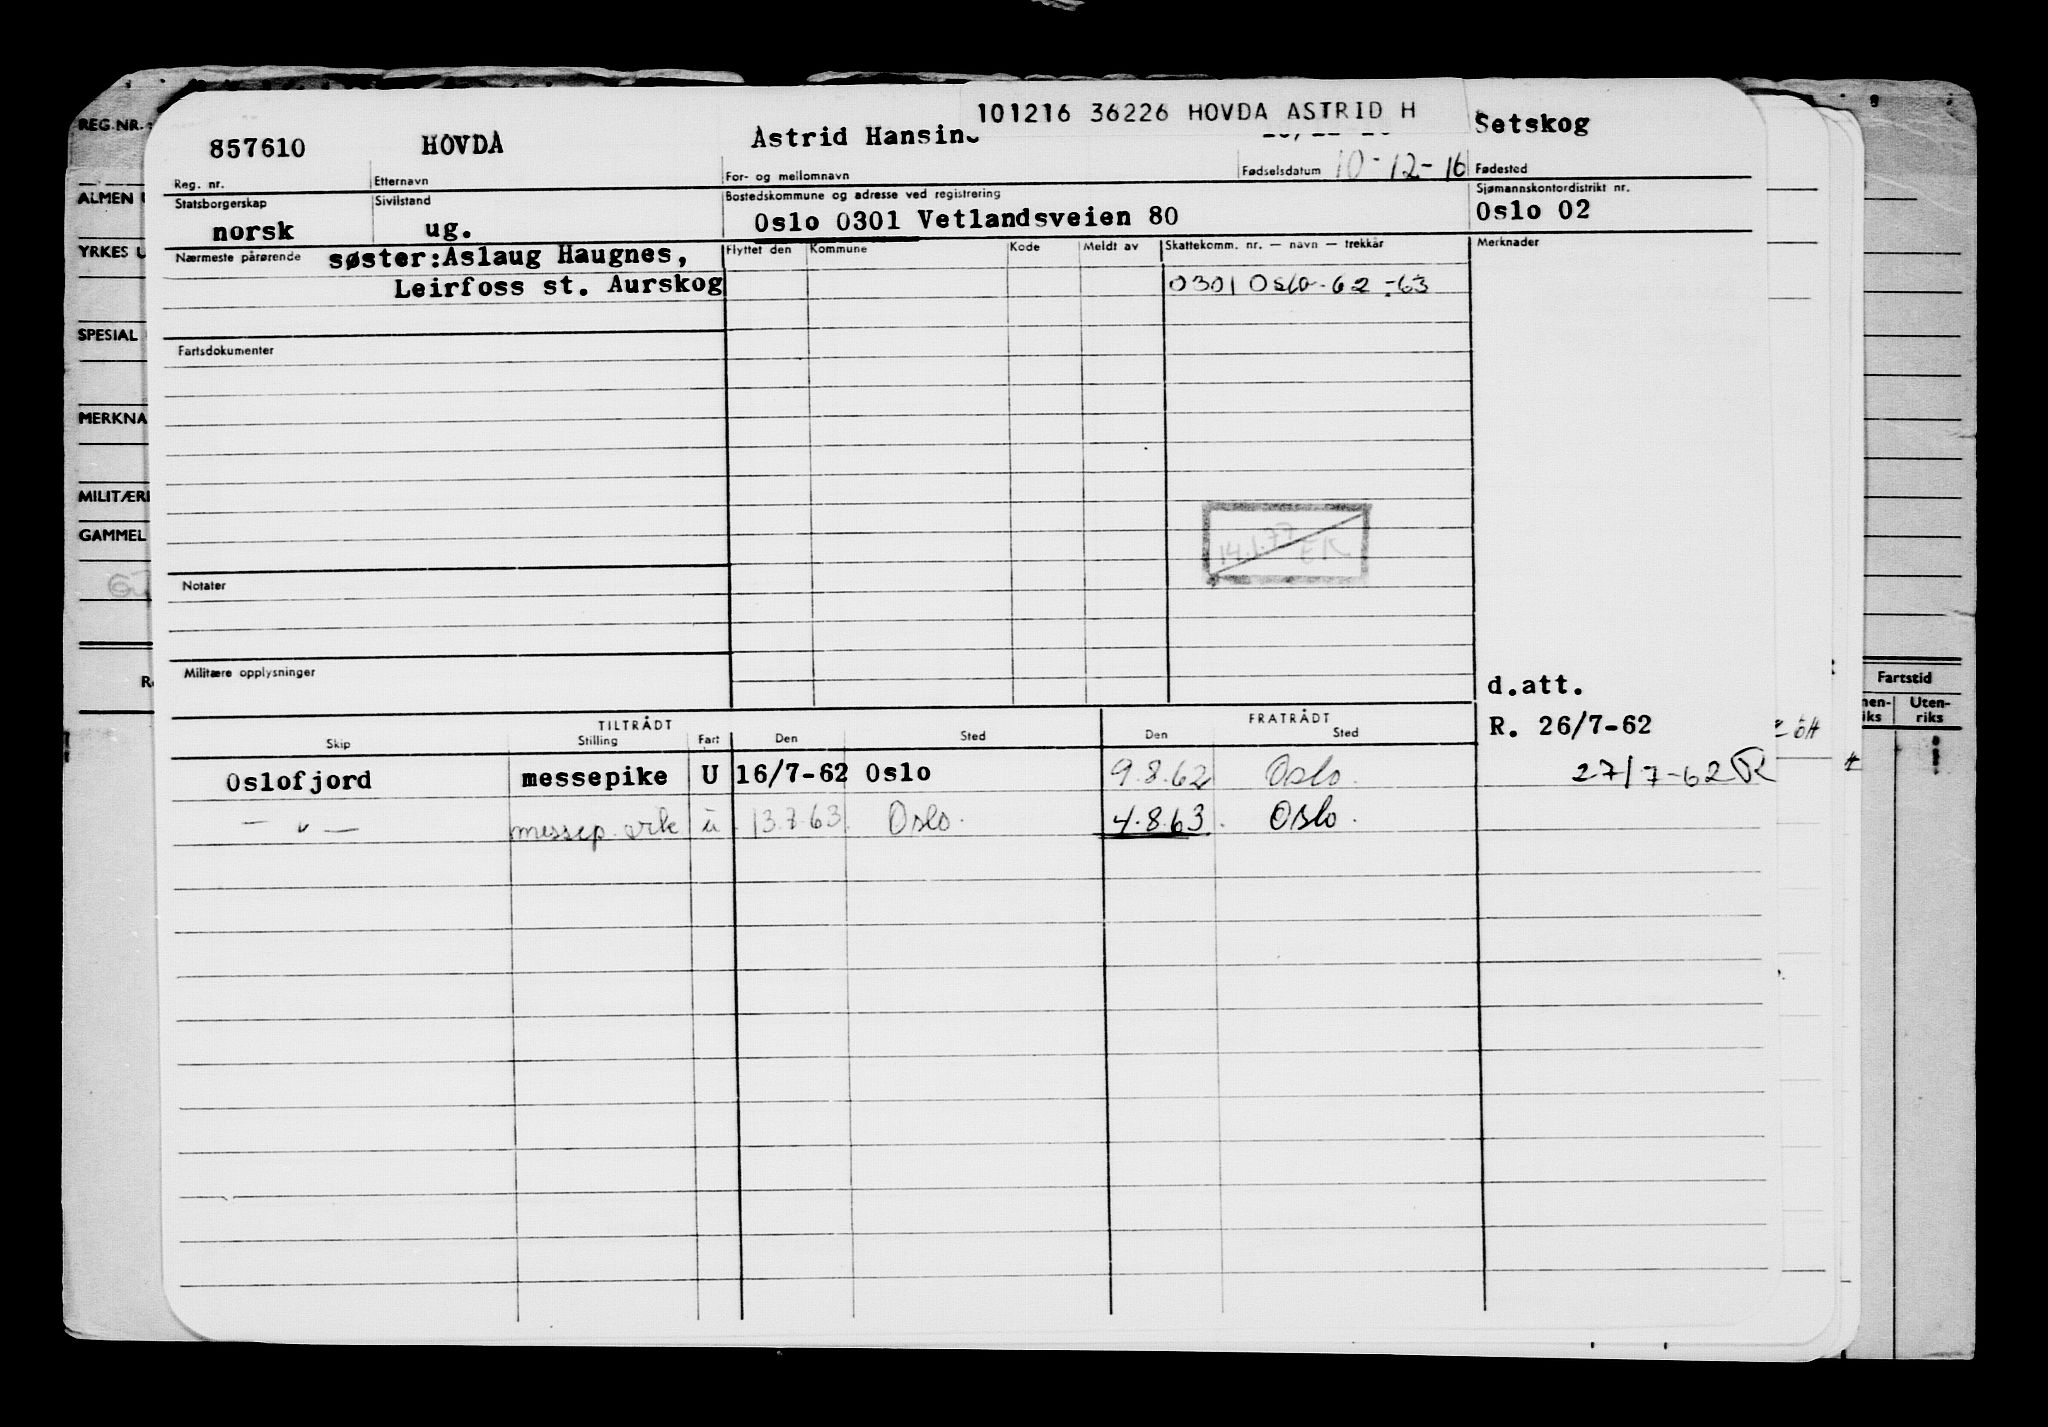 101216 36226 HOVDA ASTRID H
REG.NR.
857610 HOVDA Astrid Hansine Setskog
Reg. nr. Etternavn For- og mellomnavn Fødselsdatum 10-12-16 Fødested
ALMEN
Statsborgerskap Sivilstand Bostedskommune og adresse ved registrering Sjømannskontordistrikt nr.
norsk ug. Oslo 0301 Vetlandsveien 80 Oslo 02
YRKES
Nærmeste pårørende søster:Aslaug Haugnes, Flyttet den Kommune Kode Meldt av Skattekomm. nr. — navn — trekkår Merknader
Leirfoss st. Aurskog 0301 Oslo - 62 - 63
SPESIAL
Fartsdokumenter
MERKNA
MILITÆRE
GAMMEL
14.1.77 ER
Notater
Militære opplysninger
d.att.
Fartstid
TILTRÅDT FRATRÅDT R. 26/7-62
Skip Stilling Fart Den Sted Den Sted
Uten-
riks
Oslofjord messepike U 16/7-62 Oslo 9.8.62 Oslo. 27/7-62 R
— " — messep. erk u 13.7.63. Oslo. 4.8.63. Oslo.